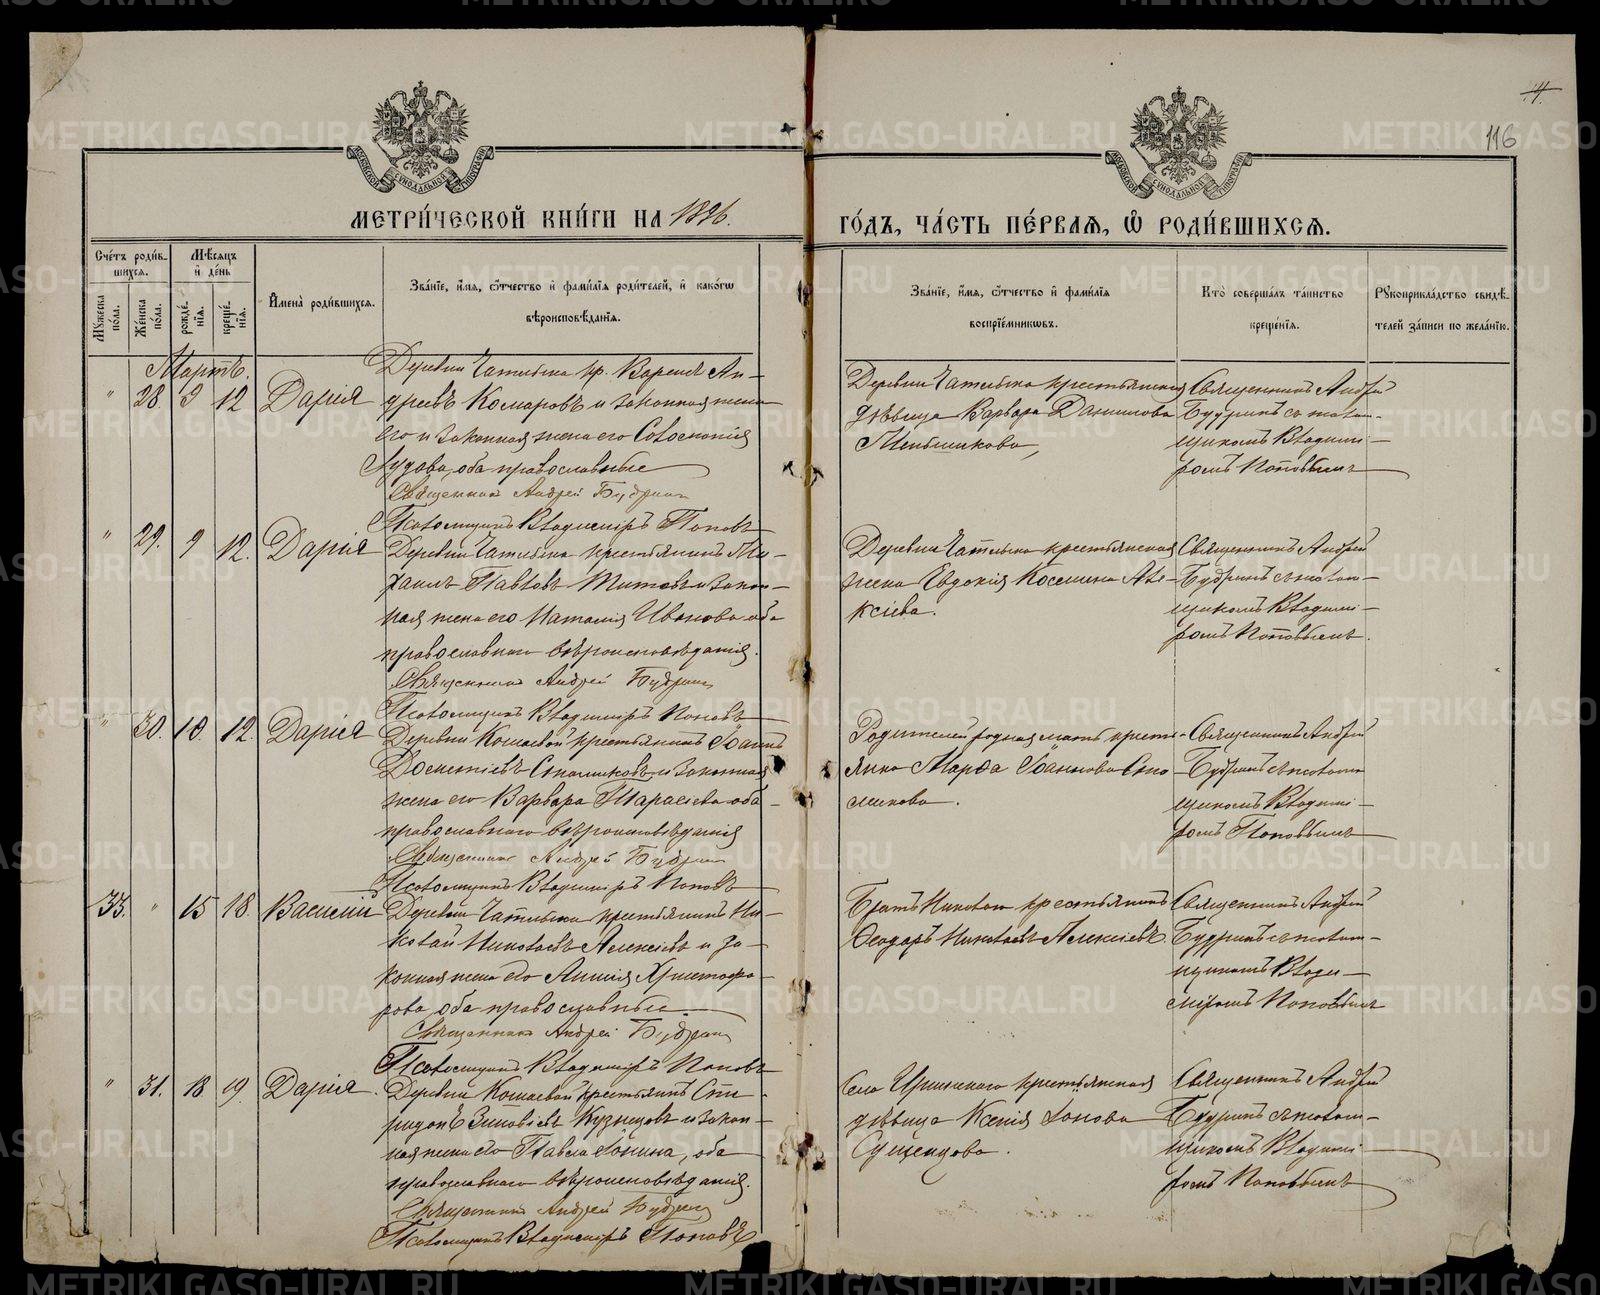 116
МЕТРИ́ЧЕСКОЙ КНИ́ГИ НА 1896.
ГО́ДЪ, ЧА́СТЬ ПЕ́РВАѦ, Ѡ҆ РОДИ́ВШИХСѦ.
Сче́тъ роди́вшихсѧ.
Мѣ́сѧцъ и҆ де́нь
Мꙋ́жеска по́ла.
Же́нска по́ла.
рожде́нїѧ.
креще́нїѧ.
И҆мена̀ роди́вшихсѧ.
Зва́нїе, и҆́мѧ, ѻ҆́тчество и҆ фами́лїѧ роди́телей, и҆ како́гѡ
вѣроисповѣ́данїѧ.
Зва́нїе, и҆́мѧ, ѻ҆́тчество и҆ фами́лїѧ
воспрїе́мникѡвъ.
Кто̀ соверша́лъ та́инство
креще́нїѧ.
Рꙋкоприкла́дство свидѣ́
телей за́писи по жела́нїю.
Мартъ.
" 28. 9 12 Дарія
Деревни Чатлыка кр. Ан-
дреевъ Комаровъ и законная жена
его и законная жена его
оба православные
Священникъ Андрей Будринъ
Псаломщикъ Владиміръ Поповъ
Деревни Чатлыка крестьянская
дѣвица Варвара Данилова
Священникъ Андрей
Будринъ съ псалом-
щикомъ Владими-
ромъ Поповымъ
" 29. 9 12. Дарія
Деревни Чатлыка крестьянинъ Ми-
хаилъ Павловъ Титовъ и закон-
ная жена его Наталія Иванова оба
православнаго вѣроисповѣданія.
Священникъ Андрей Будринъ
Псаломщикъ Владиміръ Поповъ
Деревни Чатлыка крестьянская
жена Евдокія Космина Але-
ксіева.
Священникъ Андрей
Будринъ съ псалом-
щикомъ Владими-
ромъ Поповымъ.
" 30. 10. 12. Дарія
Деревни Кошаевой крестьянинъ Іоаннъ
Дометіевъ и законная
жена его Варвара Тарасіева оба
православнаго вѣроисповѣданія
Священникъ Андрей Будринъ
Псаломщикъ Владиміръ Поповъ
Родителей родная мать кресть-
янка Марѳа Іоаннова
Священникъ Андрей
Будринъ съ псалом
щикомъ Владими-
ромъ Поповымъ
33. " 15 18. Василій
Деревни Чатлыка крестьянинъ Ни-
колай Николаевъ Алексіевъ и за-
конная жена его Христофо-
рова, оба православные.
Священникъ Андрей Будринъ
Псаломщикъ Владиміръ Поповъ
Братъ Николая крестьянинъ
Ѳеодоръ Николаевъ Алексіевъ
Священникъ Андрей
Будринъ съ псалом-
щикомъ Влади-
міромъ Поповымъ
" 31. 18 19. Дарія.
Деревни Кошаевой крестьянинъ Спи-
ридонъ Зиновіевъ Кузнецовъ и закон-
ная жена его Павла Іонина, оба
православнаго вѣроисповѣданія.
Священникъ Андрей Будринъ
Псаломщикъ Владиміръ Поповъ
Села Иргинскаго крестьянская
дѣвица Ксенія Іонова
Священникъ Андрей
Будринъ съ псалом-
щикомъ Владими-
ромъ Поповымъ
METRIKI.GASO-URAL.RU